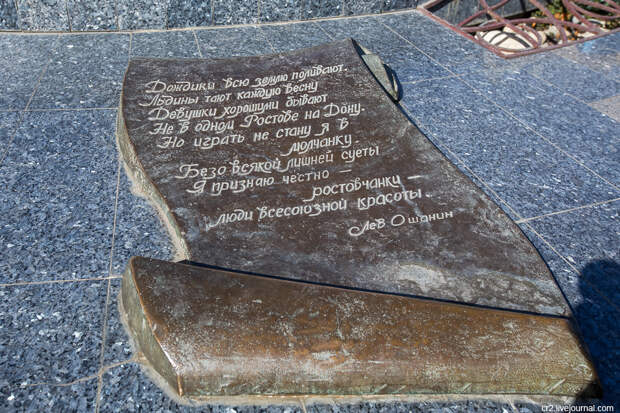 Дождики всю землю поливают.
Льдины тают каждую весну
Девушки хорошими бывают
Не в одном Ростове на Дону.
Но играть не стану я в
молчанку.
Безо всякой лишней суеты
Я признаю честно –
ростовчанки –
люди всесоюзной красоты
Лев Ошанин
cr2.livejournal.com